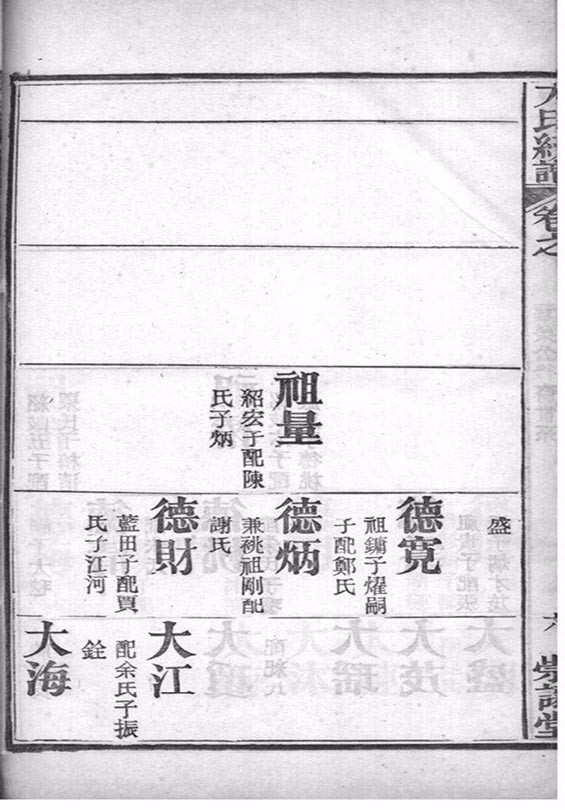 卷之
祖量
紹宏子配陳
氏子炳
盛
德寬
祖鏞子燿嗣
子配鄭氏
德炳
兼祧祖剛配
謝氏
德財
藍田子配賈
氏子江河
大江
配余氏子振
銓
大海